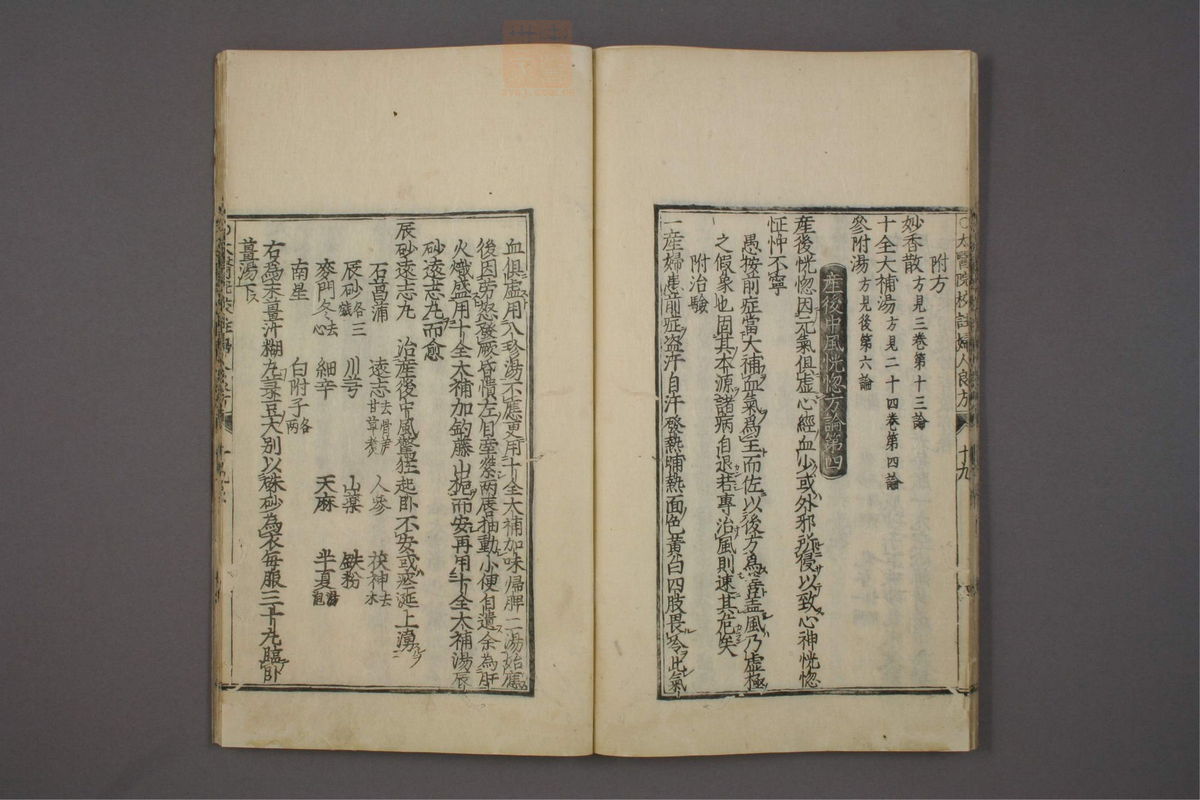 ○太醫院校註婦人良方 十九
附方
妙香散方見三卷第十三論
十全大補湯方見二十四卷第四論
參附湯方見後第六論
産後中風恍惚方論第四
産後恍惚因元氣俱虛心經血少或外邪所侵以致心神恍惚
怔忡不寧
愚按前症當大補血氣爲主而佐以後方爲善盖風乃虛極
之假象也固其本源諸病自退若專治風則速其危矣
附治驗
一産婦患前症盗汗自汗發熱晡熱面色黃白四肢畏冷此氣
血俱虛用八珍湯不應更用十全大補加味歸脾二湯始應
後因勞怒發厥昏憒左目牽𦂶兩唇抽動小便自遺余為肝
火熾盛用十全大補加鈎藤山梔而安再用十全大補湯辰
砂遠志丸而愈
辰砂遠志丸 治産後中風驚狂起卧不安或痰涎上湧
石菖蒲 遠志去骨 甘草 人參 茯神去木
辰砂各三錢 川芎 山藥 鉄粉
麥門冬去心 細辛 天麻 半夏湯泡
南星 白附子各兩
右為末薑汁糊丸菉豆大別以硃砂為衣每服三十丸臨卧
薑湯下